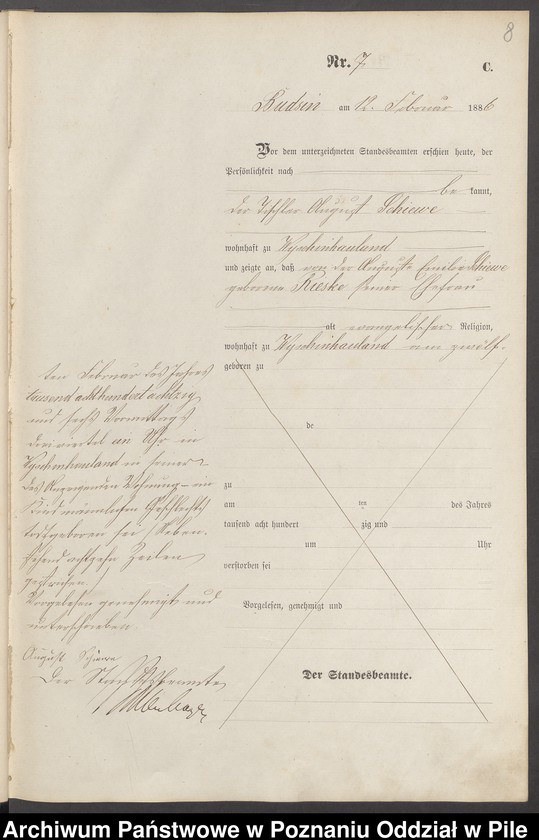 8
Nr. 7
C.
Budsin am 12. Februar 1886
Vor dem unterzeichneten Standesbeamten erschien heute, der
Persönlichkeit nach
be kannt,
der Tischler August Schiewe
wohnhaft zu Wyschinhauland
und zeigte an, daß von der Auguste Emilie Schiewe
geborene Rieske seiner Ehefrau
alt evangelischer Religion,
wohnhaft zu Wyschinhauland am zwölf-
geboren zu
ten Februar des Jahres
tausend achthundert achtzig
und sechs Vormittags
dreiviertel an Uhr in
Wyschinhauland in seiner
des Anzeigenden Wohnung ein
Kind männlichen Geschlechts
todtgeboren sei. Neben-
stehend achtzehn Zeilen
gestrichen.
Vorgelesen genehmigt und
unterschrieben
August Schiewe
Der Standesbeamte
de
zu
am ten des Jahres
tausend acht hundert zig und
um Uhr
verstorben sei
Vorgelesen, genehmigt und
Der Standesbeamte.
Archiwum Państwowe w Poznaniu Oddział w Pile